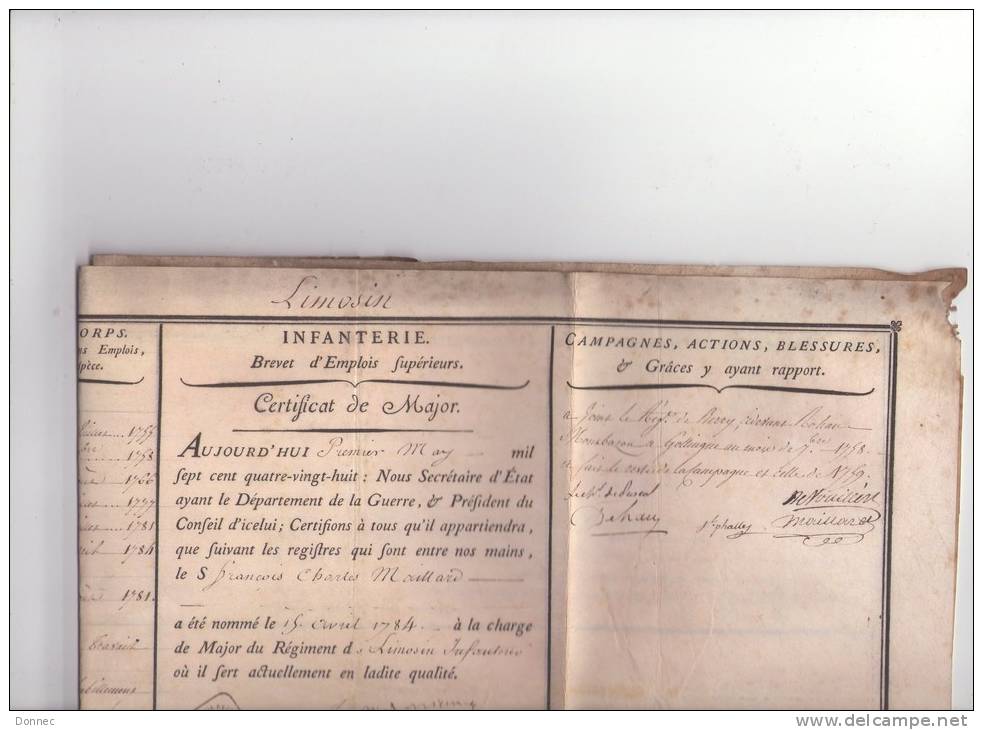 Limosin
ORPS.
s Emplois,
pèce.
1755
1758
1766
1777
1781
1784
1781.
INFANTERIE.
Brevet d'Emplois supérieurs.
Certificat de Major.
AUJOURD'HUI Premier May mil
sept cent quatre-vingt-huit : Nous Secrétaire d'État
ayant le Département de la Guerre, & Président du
Conseil d'icelui; Certifions à tous qu'il appartiendra,
que suivant les registres qui sont entre nos mains,
le S françois Charles Maillard
a été nommé le 15 avril 1784 à la charge
de Major du Régiment de Limosin Infanterie
où il sert actuellement en ladite qualité.
CAMPAGNES, ACTIONS, BLESSURES,
& Grâces y ayant rapport.
a Joint le Régt. de Berry, Rohan
Montbazon a Gottingue au mois de 7bre 1758.
a fait le reste de la Campagne et Celle de 1759.
Maillard
Donnec
www.delcampe.net